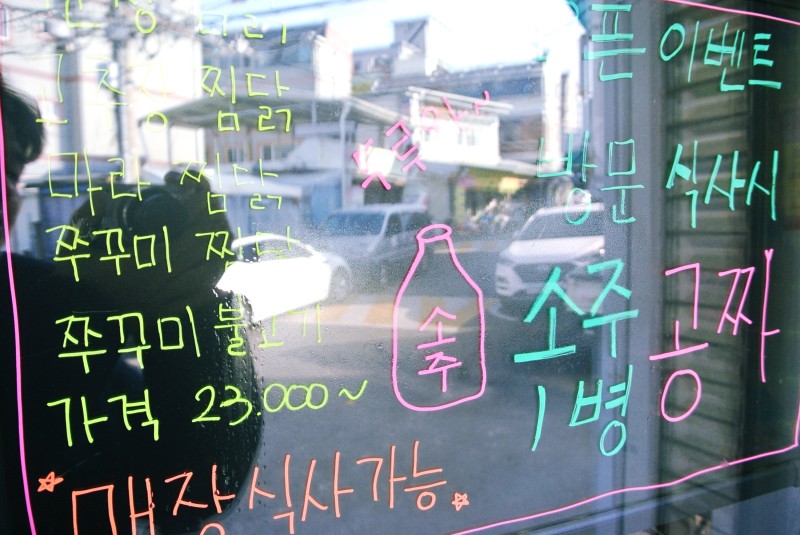 찜닭
고추장 찜닭
마라 찜닭
쭈꾸미 찜닭
쭈꾸미 불고기
가격 23.000~
매장식사가능
소주
픈 이벤트
방문 식사시
소주 공짜
1병